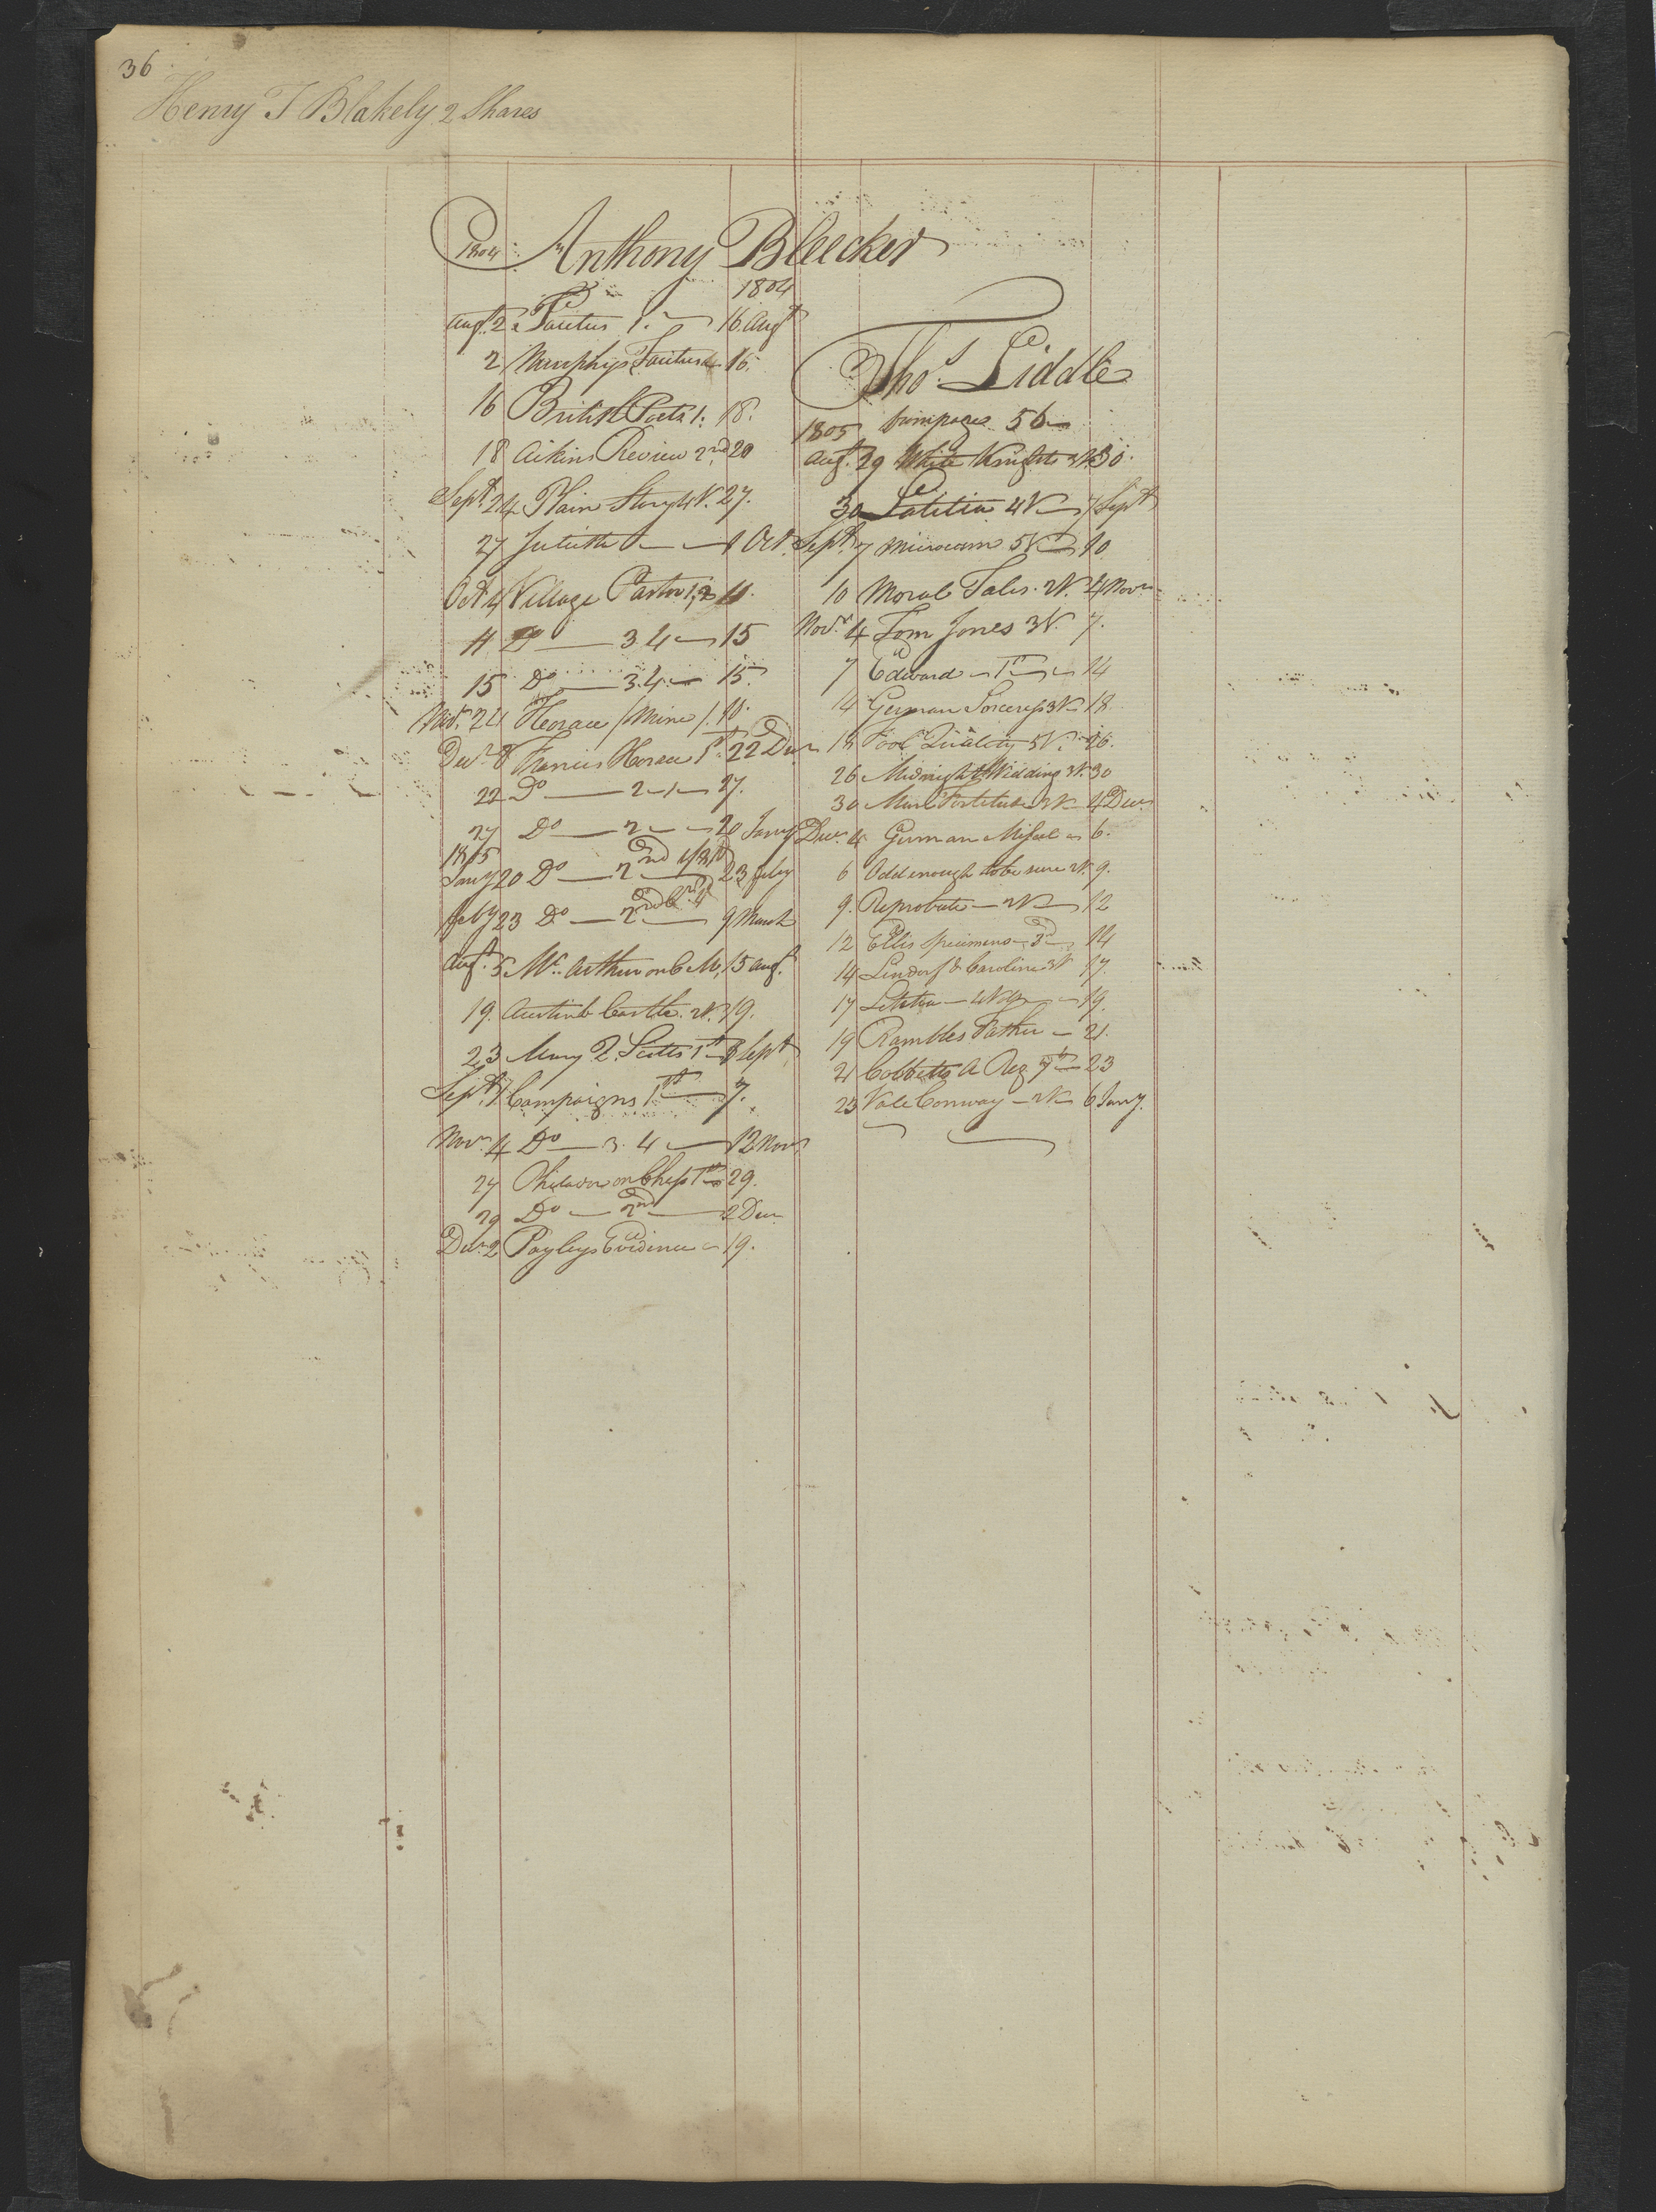 36
Henry T Blakely 2 Shares
1804 Anthony Bleecker
1804
Augt. 2 Tacitus 1. 16 Augt
2 Murphys Tacitus 16.
16 British Poets 1. 18.
18 Aikins Review 2nd 20
Sept. 24 Plain Story 4V. 27.
27 1 Oct.
Oct 4 Village Pastor 1,2 11.
11 Do 3.4 15
15 Do 3.4 15.
Nov. 24 Horace /Mine/. 10.
Decr. 8 Francis Horace 1st. 22 Decr
22 Do 2 27.
27 Do 2 20 Jany
1805
Jany 20 Do 2nd 23 feby
feby 23 Do 2nd 9 March
Augt. 5 Mc. Arthur on C M, 15 augt.
19. Austinb Castle. 2V. 19.
23 Mary 2. Scotts 1st Sept
Sept. 7 Campaigns 1st 7.
Novr. 4 Do 3.4 12 Novr
27 Philador on Chess 1st 29.
29 Do 2nd 2 Decr
Decr. 2 Payleys Evidence 19.
Thos. Liddle
1805 from page 56
Augt. 29 White Knights 3V. 30.
30 Letitia 4V 7 Sept
Sept. 7 5V 10
10 Moral Tales. 2V. 4 Novr
Novr. 4 Tom Jones 3V. 7.
7 Edward 1st 14
14 German Sorceress 3V 18
18 Fool Quality 5V. 26.
26 Midnight Wedding 3V. 30
30 Fortitude 3V 4 Decr
Decr. 4 German Missel 6.
6 Odd enough to be sure 2V. 9.
9. Reprobate 2V 12
12 Ellis Specimens 3d 14
14 Lindorf & Caroline 3V 17.
17 Letitia 19.
19 Rambles Father 21.
21 Cobbetts A Reg 7th 23
23 Vale Conway 2V 6 Jany.